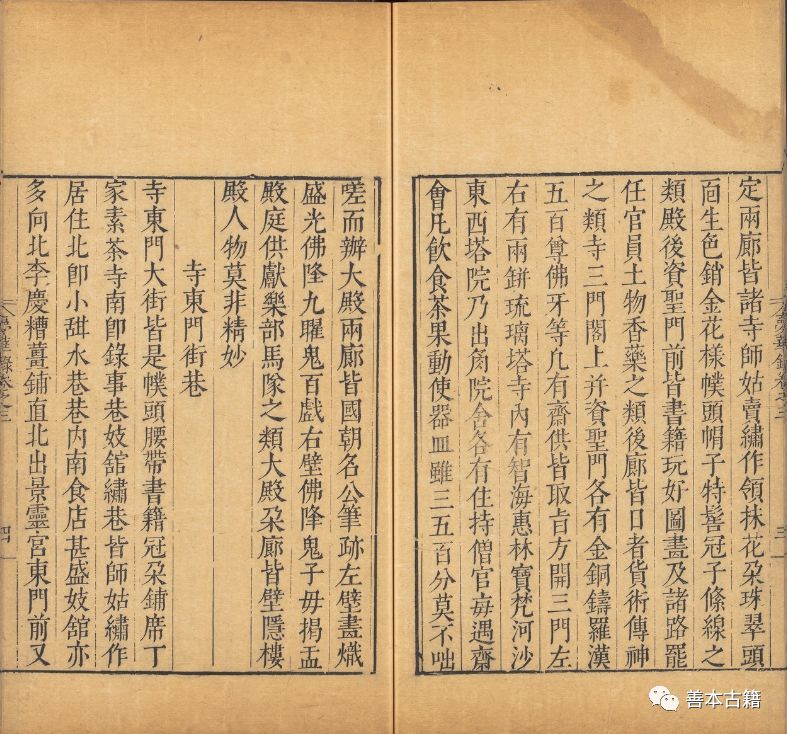 定兩廊皆諸寺師姑賣繡作領抹花朵珠翠頭
面生色銷金花樣幞頭帽子特髻冠子絛線之
類殿後資聖門前皆書籍玩好圖畫及諸路罷
任官員土物香藥之類後廊皆日者貨術傳神
之類寺三門閣上并資聖門各有金銅鑄羅漢
五百尊佛牙等凡有齋供皆取旨方開三門左
右有兩缾琉璃塔寺內有智海惠林寶梵河沙
東西塔院乃出角院舍各有住持僧官每遇齋
會凡飲食茶果動使器皿雖三五百分莫不咄
嗟而辦大殿兩廊皆國朝名公筆跡左壁畫熾
盛光佛降九曜鬼百戲右壁佛降鬼子母揭盂
殿庭供獻樂部馬隊之類大殿朶廊皆壁隱樓
殿人物莫非精妙
寺東門街巷
寺東門大街皆是幞頭腰帶書籍冠朶鋪席丁
家素茶寺南卽錄事巷妓舘繡巷皆師姑繡作
居住北卽小甜水巷巷內南食店甚盛妓舘亦
多向北李慶糟薑鋪直北出景靈宮東門前又
三
四
善本古籍